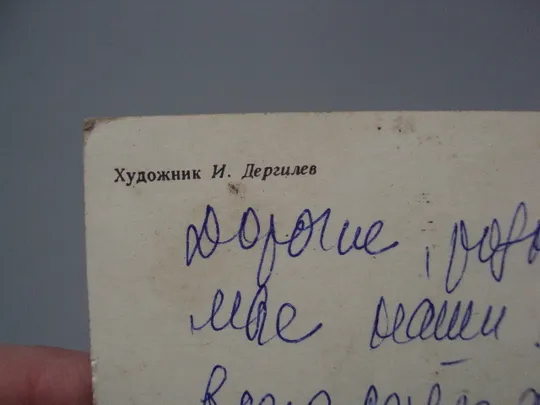 Художник И. Дергилев
Дорогие, родо
мые наши